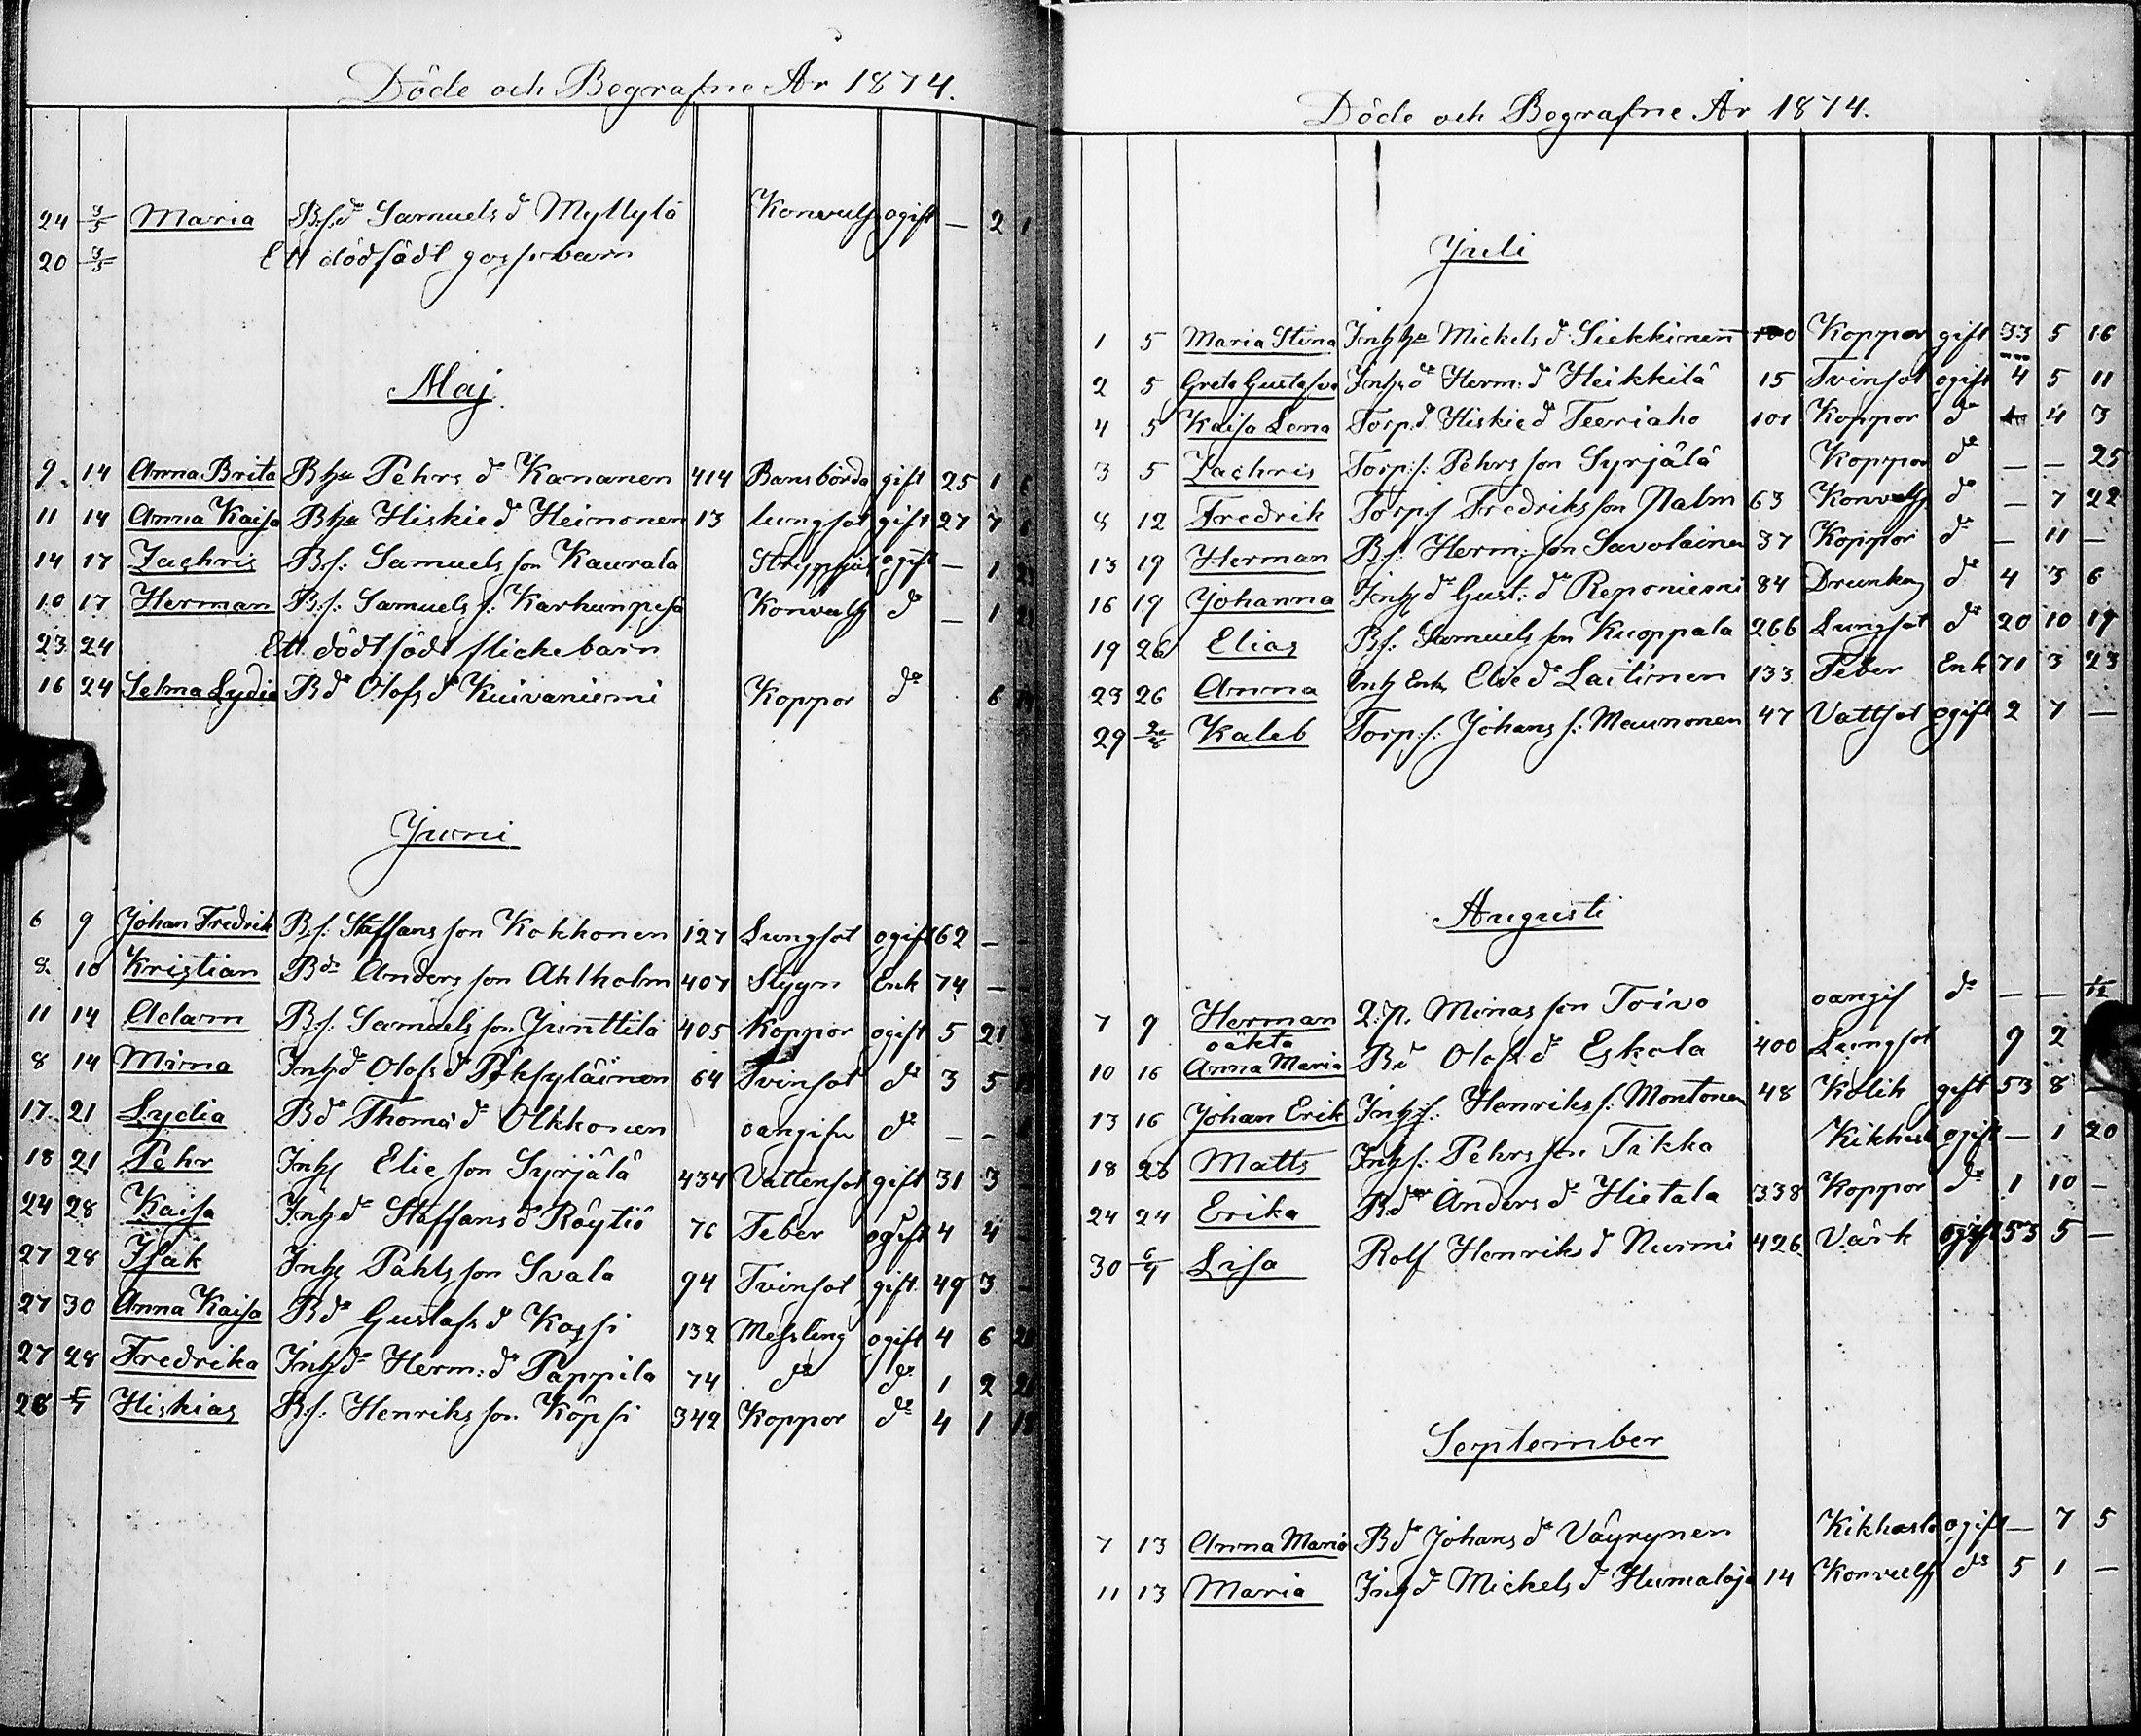 Döde och Begrafne År 1874.
24 3/5 Maria B.s.dr Samuels dr Myllylä Konvuls ogift — 2 1
20 3/5 Ett dödfödt gossebarn
Maj
9 14 Anna Brita Bhu Pehrs dr Kananen 414 Barnsbörd gift 25 1
11 14 Anna Kaisa Bhu Hiskie dr Heimonen 13 lungsot gift 27 7
14 17 Zachris B.s. Samuels son Kaurala Strypsju ogift — 1 23
10 17 Herman B.s. Samuels s. Karhunpesä Konvuls do — 1 21
23 24 Ett dödtfödt flickebarn
16 24 Selma Lydia Bdr Olofs dr Kuivaniemi Koppor do 6
Juni
6 9 Johan Fredrik B.s. Staffans son Kokkonen 127 Lungsot ogift 62 — —
8 10 Kristian Bde Anders son Ahlholm 407 Slygn Enk 74 — —
11 14 Adam B.s. Samuels son Junttila 405 Koppor ogift 5 21
8 14 Mima Inhdr Olofs dr Pöksyläinen 64 Tvinsot do 3 5
17 21 Lydia Bdr Thoma dr Olkkonen oangifn do — —
18 21 Pehr Inhs Elie son Syrjälä 434 Vattensot gift 31 3
24 28 Kaisa Inhdr Staffans dr Röytiö 76 Feber ogift 4 4
27 28 Isak Inhs Pahls son Svala 94 Tvinsot gift 49 3 —
27 30 Anna Kaisa Bdr Gustafs dr Kossi 132 Messling ogift 4 6 21
27 28 Fredrika Inhdr Herm: dr Pappila 74 do do 1 2 21
28 5/7 Hiskias B.s. Henriks son Köpsi 342 Koppor do 4 1 18
Döde och Begrafne År 1874.
Juli
1 5 Maria Stina Inhhu Mickels dr Siekkinen 100 Koppor gift 33 5 16
2 5 Greta Gustafva Inhsdr Herm: dr Heikkilä 15 Tvinsot ogift 4 5 11
4 5 Kaisa Lena Torp.dr Hiskie dr Teeriaho 101 Koppor do 4 3
3 5 Zachris Torp: s. Pehrs son Syrjälä Koppor do — — 25
8 12 Fredrik Torps Fredriks son Nalm 63 Konvuls do — 7 22
13 19 Herman B.s. Herm: son Savolainen 37 Koppor do — 11 —
16 19 Johanna Inhdr Gust: dr Reponiemi 84 Drunkng do 4 3 6
19 26 Elias B.s. Samuels son Kuoppala 266 Lungsot do 20 10 19
23 26 Anna Inh Enk Elie dr Laitinen 133 Feber Enk 71 3 23
29 2/8 Kaleb Torp: s. Johans s. Maunonen 47 Vattsot ogift 2 7 —
Augusti
7 9 Herman 2.p. Minas son Toivo oangif do — — 1/12
oäkta
10 16 Anna Maria Bd Olofs dr Eskola 400 Lungsot 9 2
13 16 Johan Erik Inhs: Henriks s. Montonen 48 Kolik gift 53 8 —
18 23 Matts Inhs: Pehrs son Tikka Kikhosta ogift — 1 20
24 24 Erika Bdr Anders dr Hietala 338 Koppor do 1 10 —
30 6/9 Lisa Rolf Henriks d Nurmi 426 Värk ogift 53 5 —
September
7 13 Anna Maria Bdr Johans dr Väyrynen Kikhosta ogift — 7 5
11 13 Maria Inhdr Mickels dr Humaloja 14 Konvuls do 5 1 —